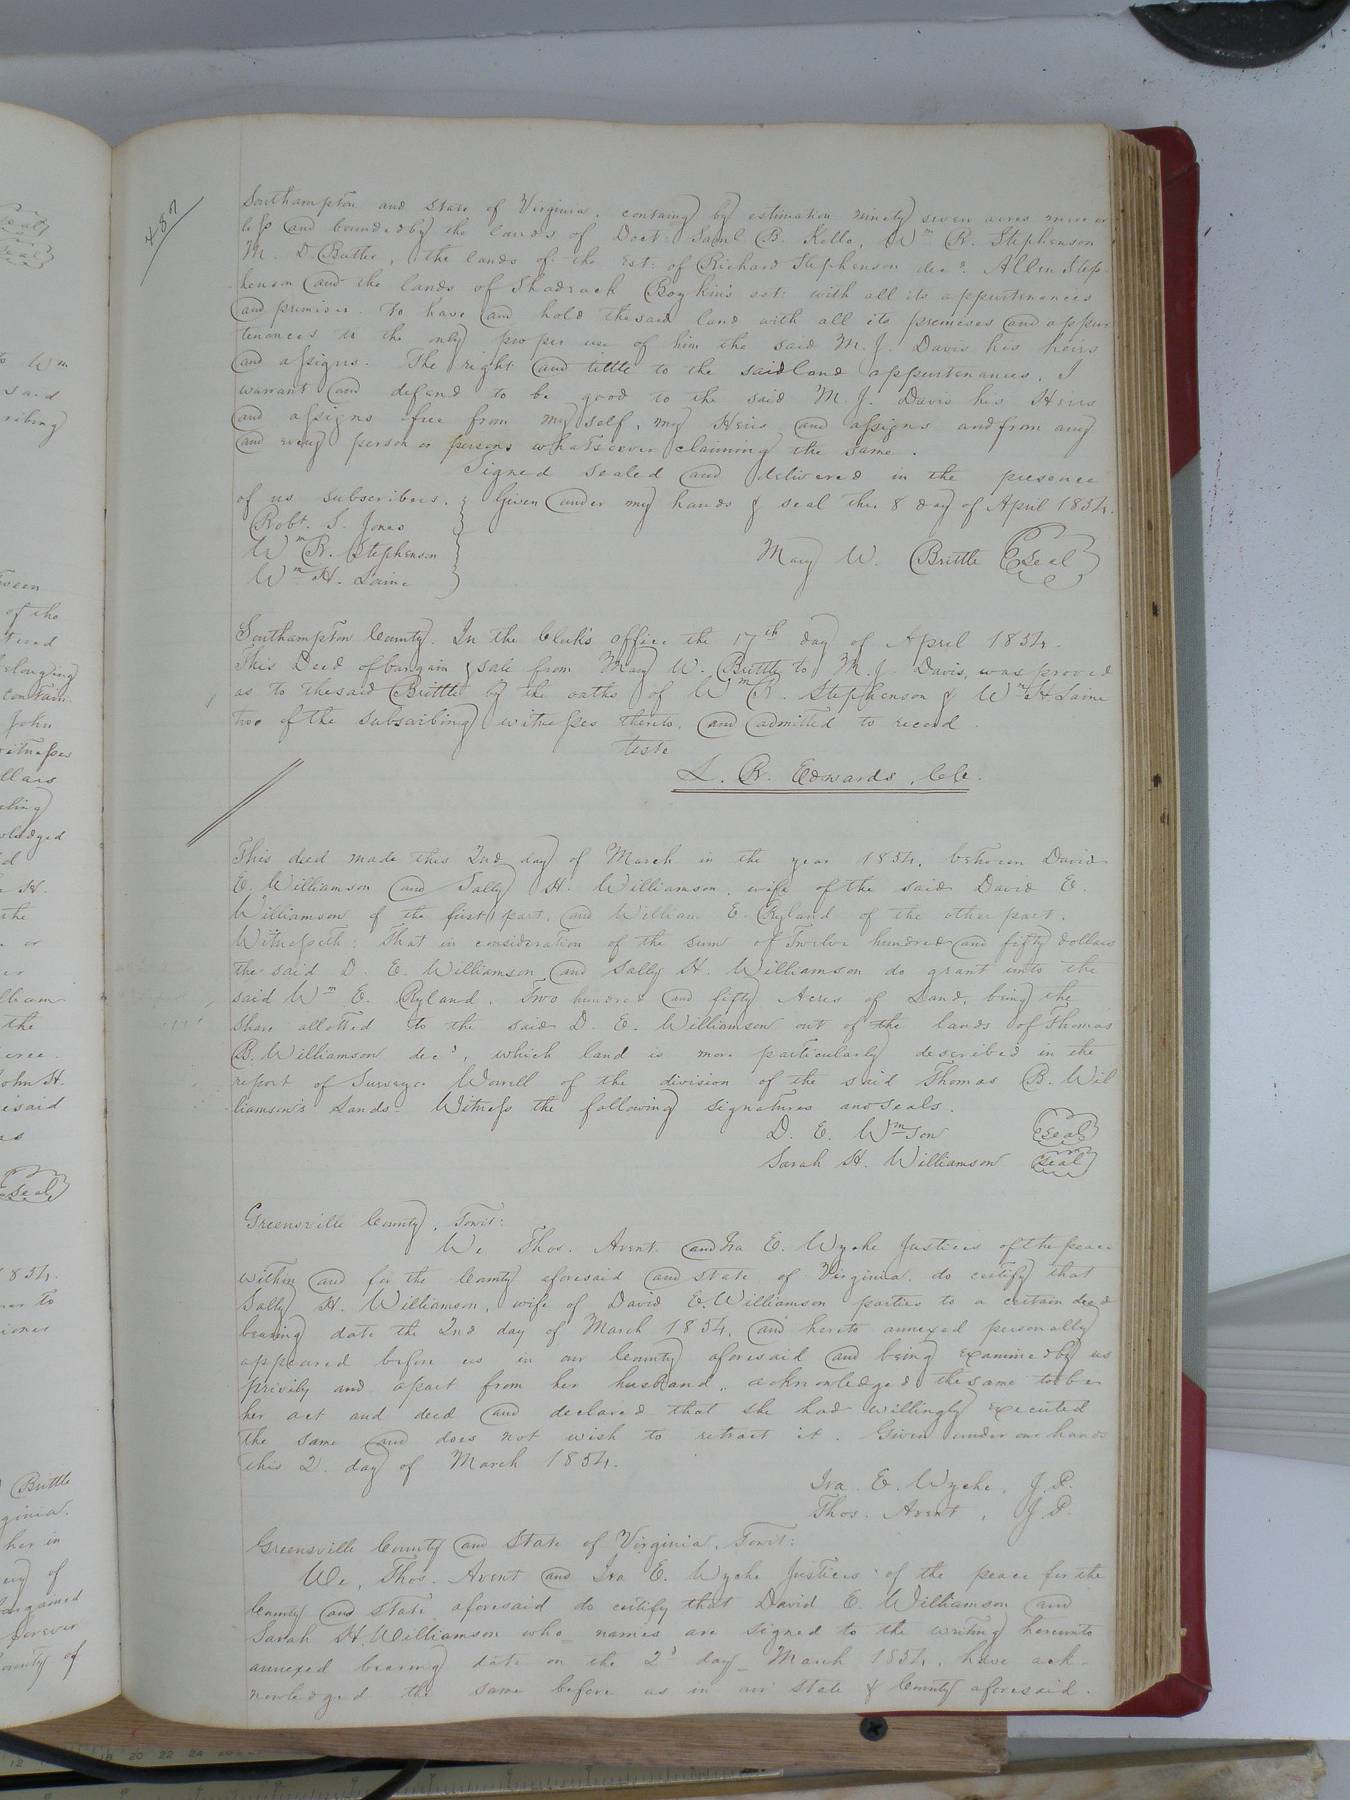 487
Southampton and State of Virginia, containg by estimation ninety seven acres more or
less and bounded by the lands of Doct: Saml B. Kello, Wm R. Stephenson
M. D. Butler, the lands of the Est: of Richard Stephenson decd. Allen Step-
henson and the lands of Shadrack Boykin's est: with all its appurtenances
and premises. To have and hold the said land with all its premises and appur
tenances to the only proper use of him the said M. J. Davis his heirs
and assigns. The right and tittle to the said land appurtenances, I
warrant and defend to be good to the said M. J. Davis his Heirs
and assigns free from my self, my Heirs and assigns and from any
and every person or persons whatsoever claiming the same.
Signed sealed and delivered in the presence
of us subscribers. Given under my hands & seal this 8 day of April 1854.
Robt. S. Jones
Wm R. Stephenson
Wm H. Laine
Mary W. Brittle Seal
Southampton County. In the Clerk's office the 17th day of April 1854.
This Deed of bargain & sale from Mary W. Brittle to M. J. Davis, was proved
as to the said Brittle by the oaths of Wm R. Stephenson & Wm H. Laine
two of the subscribing witnesses thereto, and admitted to record
Teste
L. R. Edwards, Clk.
This deed made this 2nd day of March in the year 1854, between David
E. Williamson and Sally H. Williamson, wife of the said David E.
Williamson of the first part, and William E. Ryland of the other part.
Witnesseth: That in consideration of the sum of Twelve hundred and fifty dollars
the said D. E. Williamson and Sally H. Williamson do grant unto the
said Wm E. Ryland. Two hundred and fifty Acres of Land, being the
Share allotted to the said D. E. Williamson out of the lands of Thomas
B. Williamson decd, which land is more particularly described in the
report of Surveyor Worrell of the division of the said Thomas B. Wil
liamson's Lands. Witness the following signatures and seals.
D. E. Wmson Seal
Sarah H. Williamson Seal
Greensville County, Towit:
We Thos. Avent and Ira E. Wyche Justices of the peace
within and for the County aforesaid and state of Virginia, do certify that
Sally H. Williamson, wife of David E. Williamson parties to a certain deed
bearing date the 2nd day of March 1854, and hereto annexed personally
appeared before us in our County aforesaid and being examined by us
privily and apart from her husband, acknowledged the same to be
her act and deed and declared that she had willingly executed
the same and does not wish to retract it. Given under our hands
this 2. day of March 1854.
Ira E. Wyche, J. P.
Thos. Avent, J. P.
Greensville County and State of Virginia, Towit:
We, Thos. Avent and Ira E. Wyche Justices of the peace for the
County and state aforesaid do certify that David E. Williamson and
Sarah H. Williamson who names are signed to the writing hereunto
annexed bearing date on the 2d day March 1854, have ack-
nowledged the same before us in our state & County aforesaid.